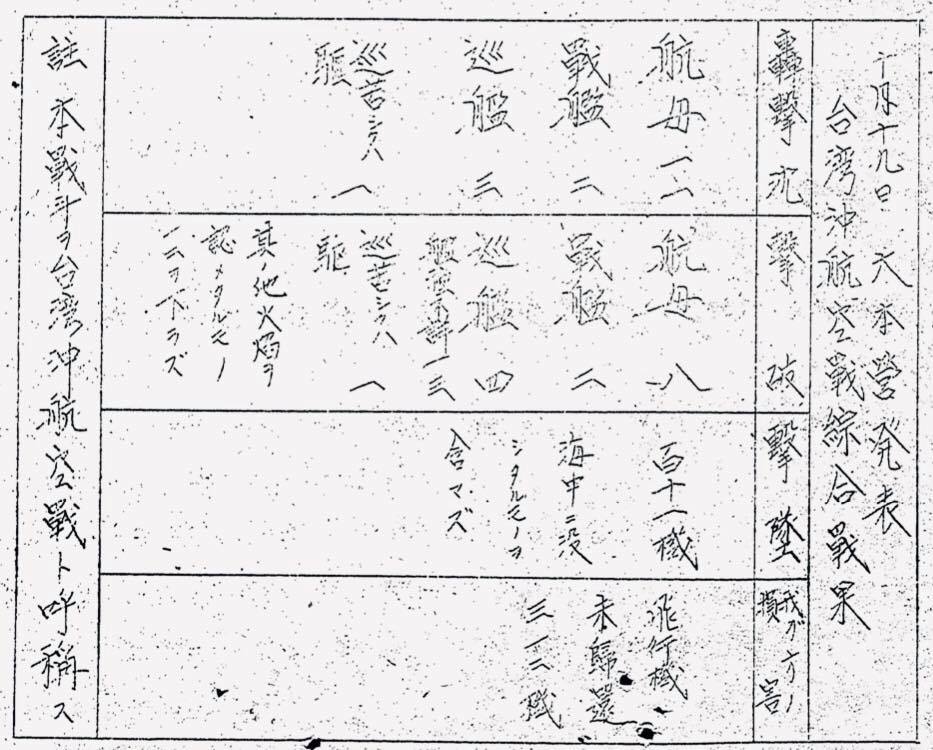 十月十九日 大本営発表
台湾沖航空戰綜合戰果
轟撃沈
航母 一一
戰艦 二
巡艦 三
巡若シクハ
駆 一
撃破
航母 八
戰艦 二
巡艦 四
艦種不詳 一三
巡若シクハ
駆 一
其ノ他火焰ヲ
認メタルモノ
一二ヲ下ラズ
撃墜
百十二機
海中ニ没
シタルモノヲ
含マズ
我ガ方ノ
損害
飛行機
未歸還
三一二機
註 本戰斗ヲ台湾沖航空戰ト呼稱ス